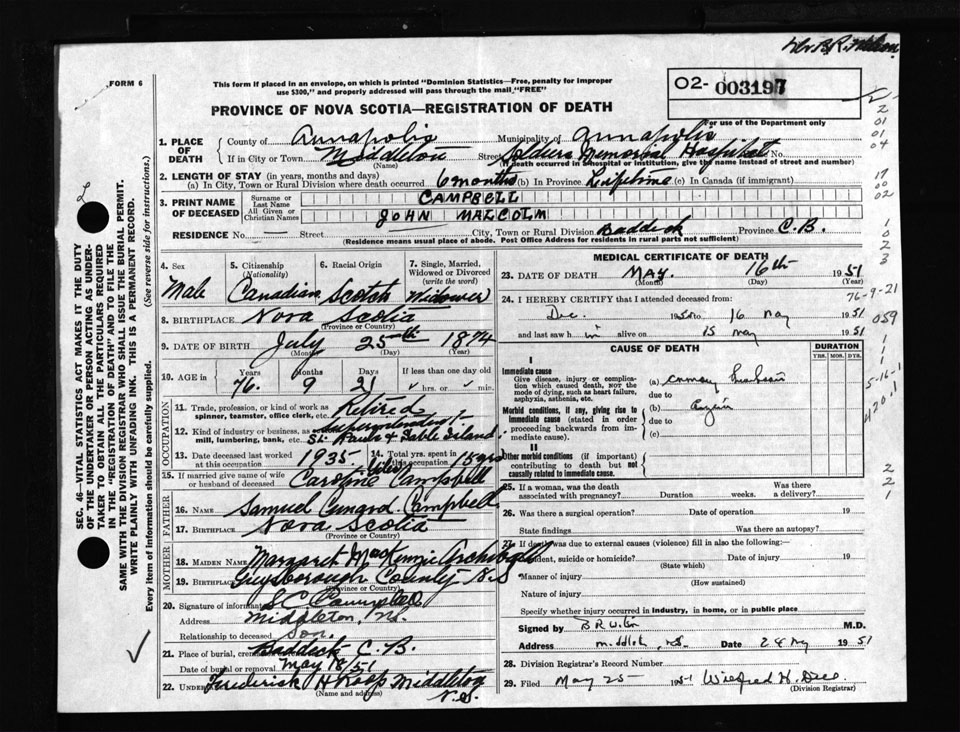 Dr B.R. Wilson
FORM 6
This form if placed in an envelope, on which is printed "Dominion Statistics—Free, penalty for improper
use $300," and properly addressed will pass through the mail "FREE"
PROVINCE OF NOVA SCOTIA—REGISTRATION OF DEATH
O2- 003197
For use of the Department only
1. PLACE OF DEATH County of Annapolis Municipality of Annapolis
If in City or Town Middleton Street Soldiers Memorial Hospital No.
(Name) (If death occurred in hospital or institution, give the name instead of street and number)
2. LENGTH OF STAY (in years, months and days)
(a) In City, Town or Rural Division where death occurred 6 months (b) In Province Lifetime (c) In Canada (if immigrant)
3. PRINT NAME OF DECEASED Surname or Last Name CAMPBELL
All Given or Christian Names JOHN MALCOLM
RESIDENCE No. — Street City, Town or Rural Division Baddeck Province C.B.
(Residence means usual place of abode. Post Office Address for residents in rural parts not sufficient)
4. Sex Male
5. Citizenship (Nationality) Canadian
6. Racial Origin Scotch
7. Single, Married, Widowed or Divorced (write the word) Widower
8. BIRTHPLACE Nova Scotia
(Province or Country)
9. DATE OF BIRTH July 25th 1874
(Month) (Day) (Year)
10. AGE in Years Months Days If less than one day old
76 9 21 hrs. or min.
OCCUPATION
11. Trade, profession or kind of work as spinner, teamster, office clerk, etc. Retired
12. Kind of industry or business, as mill, lumbering, bank, etc. Superintendent St. Pauls & Sable Island
13. Date deceased last worked at this occupation 1935
14. Total yrs. spent in this occupation 15 yrs
15. If married give name of wife or husband of deceased Caroline Campbell
FATHER
16. Name Samuel Cunard Campbell
17. Birthplace Nova Scotia
(Province or Country)
MOTHER
18. MAIDEN NAME Margaret MacKenzie Archibald
19. BIRTHPLACE Guysborough County N.S
(Province or Country)
20. Signature of informant S C Campbell
Address Middleton, N.S.
Relationship to deceased Son
21. Place of burial, Baddeck C.B.
Date of burial or removal May 18/51
22. Frederick H Roop Middleton N.S.
(Name and address)
MEDICAL CERTIFICATE OF DEATH
23. DATE OF DEATH MAY. 16th 1951
(Month) (Day) (Year)
24. I HEREBY CERTIFY that I attended deceased from:
Dec. 1950 to 16 May 1951
and last saw h im alive on 15 May 1951
CAUSE OF DEATH DURATION
YRS. MOS. DYS.
I
Immediate cause
Give disease, injury or complication which caused death, not the mode of dying, such as heart failure, asphyxia, asthenia, etc.
(a)
due to
Morbid conditions, if any, giving rise to immediate cause (stated in order proceeding backwards from immediate cause)
(b)
due to
(c)
II
Other morbid conditions (if important) contributing to death but not causally related to immediate cause.
25. If a woman, was the death associated with pregnancy? Duration weeks. Was there a delivery?
26. Was there a surgical operation? Date of operation 19
State findings Was there an autopsy?
27. If death was due to external causes (violence) fill in also the following:—
Accident, suicide or homicide? Date of injury 19
(State which)
Manner of injury
(How sustained)
Nature of injury
Specify whether injury occurred in industry, in home, or in public place
Signed by B R Wilson M.D.
Address Middleton, NS. Date 24 May 1951
28. Division Registrar's Record Number
29. Filed May 25 1951
(Division Registrar)
SEC. 46—VITAL STATISTICS ACT MAKES IT THE DUTY
OF THE UNDERTAKER OR PERSON ACTING AS UNDER-
TAKER TO OBTAIN ALL THE PARTICULARS REQUIRED
IN THE "REGISTRATION OF DEATH" AND TO FILE THE
SAME WITH THE DIVISION REGISTRAR WHO SHALL ISSUE THE BURIAL PERMIT.
WRITE PLAINLY WITH UNFADING INK. THIS IS A PERMANENT RECORD.
Every item of information should be carefully supplied. (See reverse side for instructions.)
2
01
01
04
17
00
02
1
0
2
3
76-9-21
059
1
1
1
5-16-1
4201
2
2
1